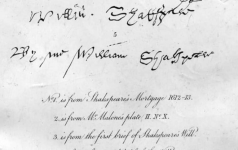 Willm Shakspere
By me William Shakspeare
No. 1. is from Shakespeare's Mortgage 1612-13.
2. is from Mr. Malone's plate II. No. X.
3. is from the first brief of Shakespeare's Will